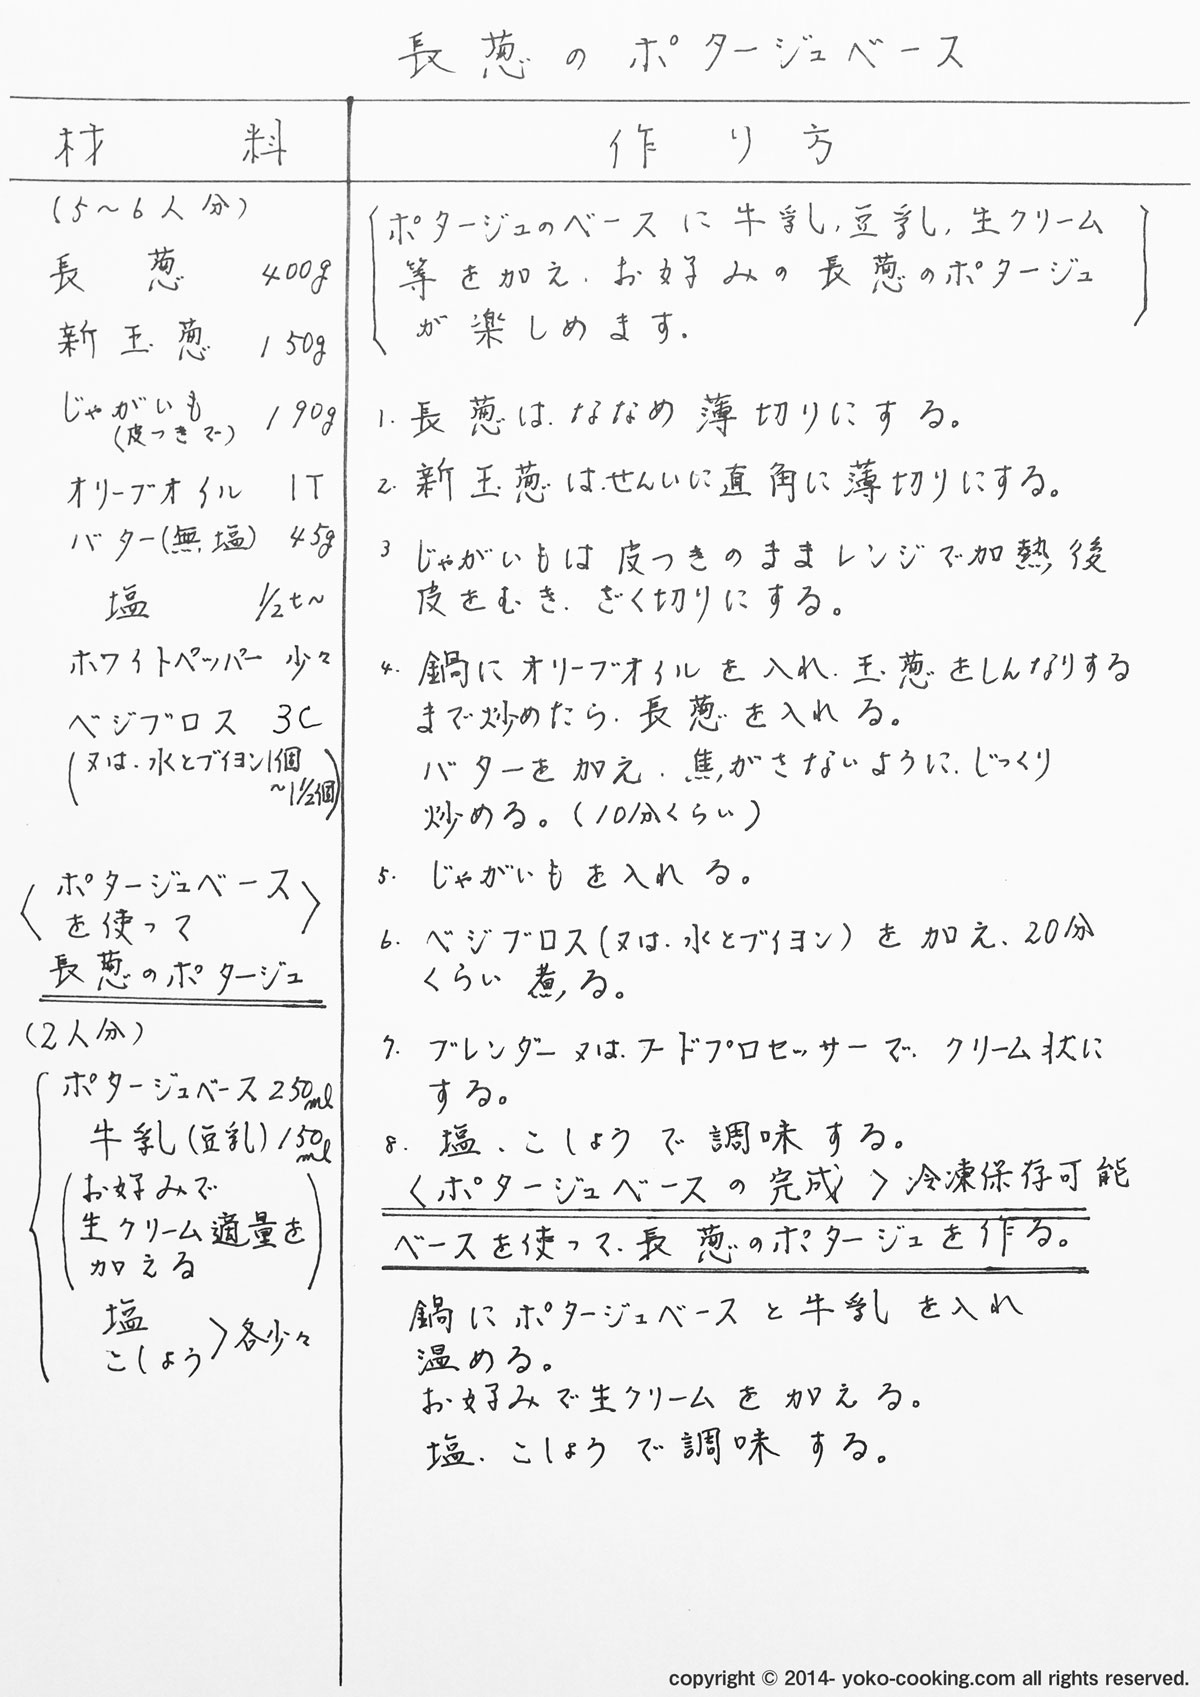 長葱のポタージュベース
材料
作り方
(5〜6人分)
長葱 400g
新玉葱 150g
じゃがいも 190g
(皮つきで)
オリーブオイル 1T
バター(無塩) 45g
塩 1/2t〜
ホワイトペッパー 少々
ベジブロス 3C
(又は、水とブイヨン1個
〜1 1/2個)
〈ポタージュベース
を使って〉
長葱のポタージュ
(2人分)
ポタージュベース 250ml
牛乳(豆乳) 150ml
(お好みで
生クリーム適量を
加える)
塩
こしょう 〉各少々
(ポタージュのベースに牛乳、豆乳、生クリーム
等を加え、お好みの長葱のポタージュ
が楽しめます。)
1. 長葱は、ななめ薄切りにする。
2. 新玉葱は、せんいに直角に薄切りにする。
3 じゃがいもは皮つきのままレンジで加熱後
皮をむき、ざく切りにする。
4. 鍋にオリーブオイルを入れ、玉葱をしんなりする
まで炒めたら、長葱を入れる。
バターを加え、焦がさないように、じっくり
炒める。(10分くらい)
5. じゃがいもを入れる。
6. ベジブロス(又は、水とブイヨン)を加え、20分
くらい煮る。
7. ブレンダー又は、フードプロセッサーで、クリーム状に
する。
8. 塩、こしょうで調味する。
〈ポタージュベースの完成〉冷凍保存可能
ベースを使って、長葱のポタージュを作る。
鍋にポタージュベースと牛乳を入れ
温める。
お好みで生クリームを加える。
塩、こしょうで調味する。
copyright © 2014- yoko-cooking.com all rights reserved.